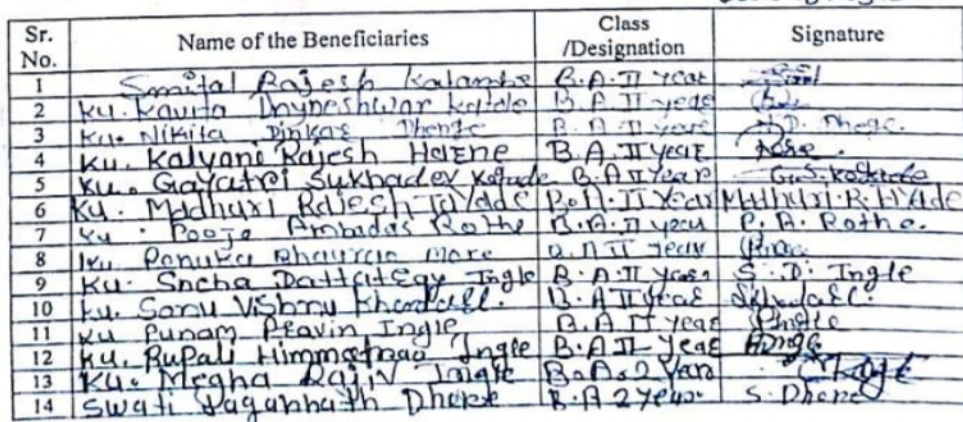 Sr. No. Name of the Beneficiaries Class /Designation Signature
1 Smital Rajesh Kalambe B.A.II year
2 Ku. Kavita Dnyneshwar Katole B.A II year
3 Ku. Nikita Dinkar Dhenge B.A.II year
4 Ku. Kalyani Rajesh Herene B.A.II year
5 Ku. Gayatri Sukhadev Katude B.A II Year G.S.Katude
6 Ku. Madhuri Rajesh Tayade B.A.II Year Madhuri.R.Tayade
7 Ku. Pooja Ambadas Rothe B.A.II year P.A.Rothe.
8 Ku. Bhaurao More B.A II Year
9 Ku. Sneha Ingle B.A.II Year S.D.Ingle
10 Ku. Sonu Vishnu B.A II Year
11 Ku Punam Pravin Ingle B.A.II Year PIngle
12 Ku. Rupali Himmatrao Ingle B.A II Year
13 Ku. Megha Rajiv Ingle B.A.2 Year
14 Swati Jagannath Dhore B.A 2 Year S.Dhore